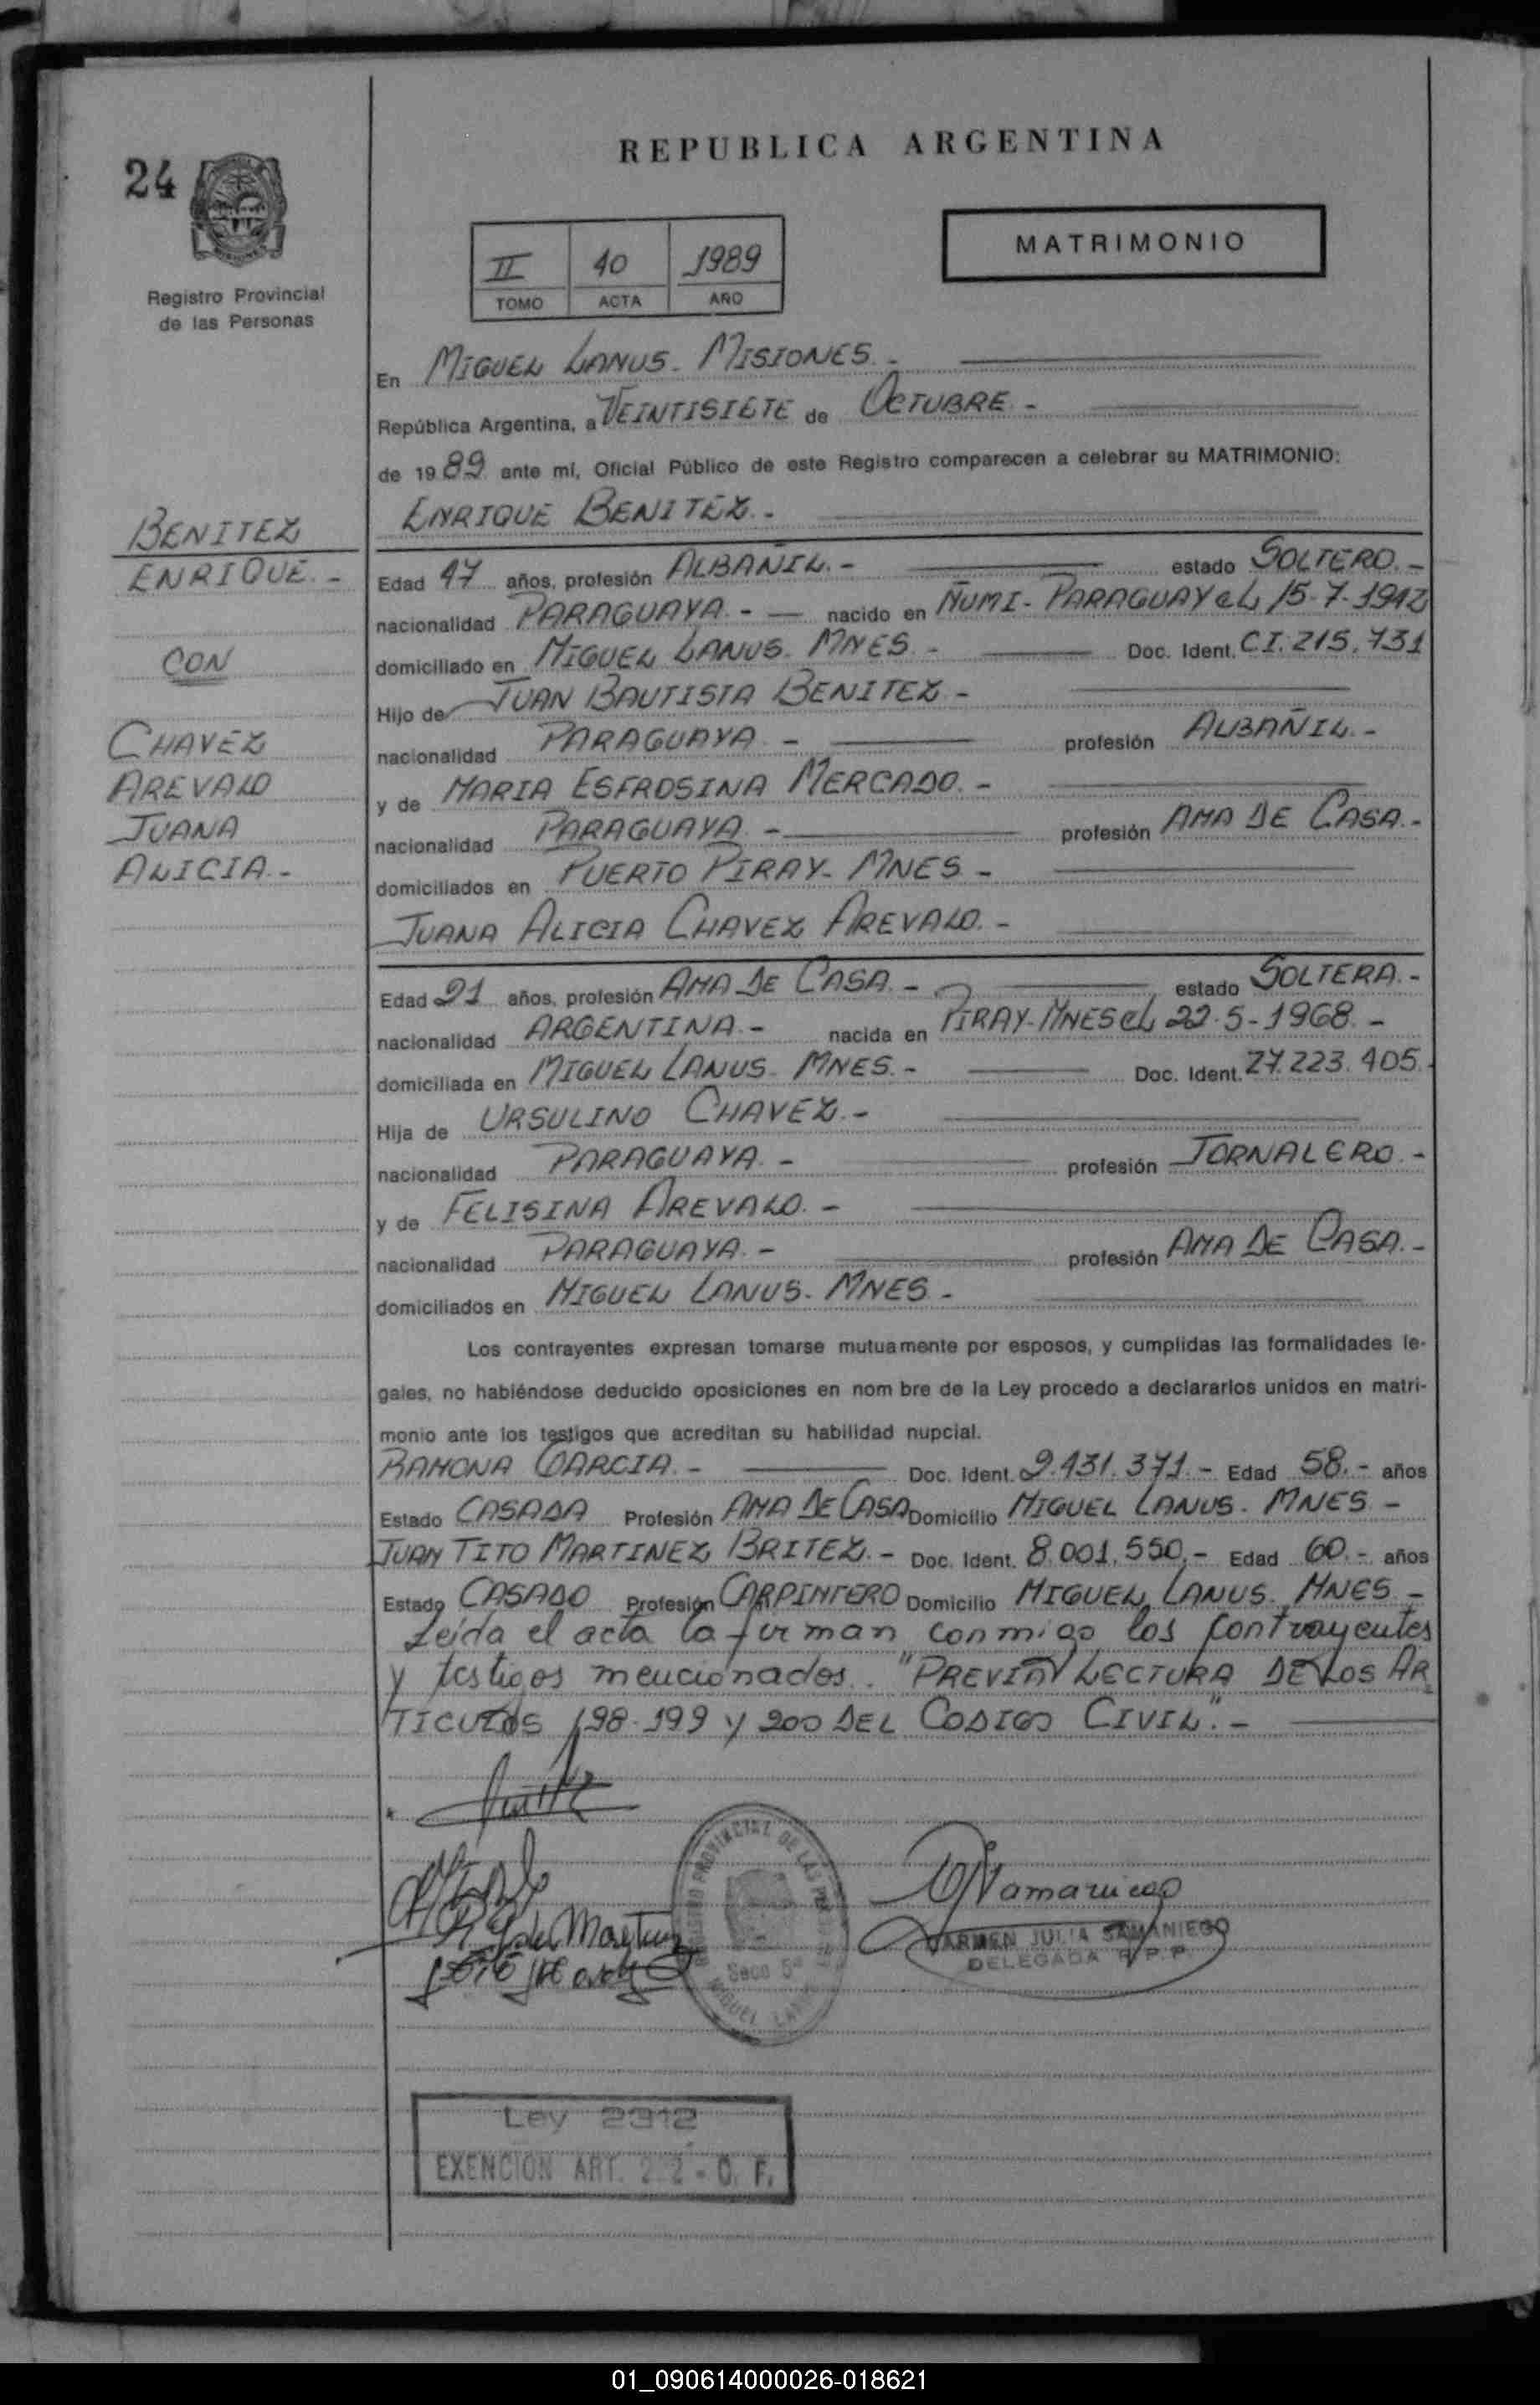 REPUBLICA ARGENTINA
24
MATRIMONIO
II 40 1989
TOMO ACTA AÑO
Registro Provincial
de las Personas
En MIGUEL LANUS - MISIONES.-
República Argentina, a VEINTISIETE de OCTUBRE.-
de 1989 ante mí, Oficial Público de este Registro comparecen a celebrar su MATRIMONIO:
ENRIQUE BENITEZ.-
BENITEZ
ENRIQUE.-
CON
CHAVEZ
AREVALO
JUANA
ALICIA.-
Edad 47 años, profesión ALBAÑIL.- estado SOLTERO.-
nacionalidad PARAGUAYA.- nacido en ÑUMI - PARAGUAY el 15-7-1942
domiciliado en MIGUEL LANUS. MNES.- Doc. Ident. C.I. 215.731
Hijo de JUAN BAUTISTA BENITEZ -
nacionalidad PARAGUAYA - profesión ALBAÑIL.-
y de MARIA ESFROSINA MERCADO.-
nacionalidad PARAGUAYA - profesión AMA DE CASA.-
domiciliados en PUERTO PIRAY - MNES -
JUANA ALICIA CHAVEZ AREVALO.-
Edad 21 años, profesión AMA DE CASA.- estado SOLTERA.-
nacionalidad ARGENTINA.- nacida en PIRAY-MNES el 22-5-1968.-
domiciliada en MIGUEL LANUS - MNES.- Doc. Ident. 27.223.405.
Hija de URSULINO CHAVEZ.-
nacionalidad PARAGUAYA.- profesión JORNALERO.-
y de FELISINA AREVALO.-
nacionalidad PARAGUAYA.- profesión AMA DE CASA.-
domiciliados en MIGUEL LANUS - MNES -
Los contrayentes expresan tomarse mutuamente por esposos, y cumplidas las formalidades le-
gales, no habiéndose deducido oposiciones en nom bre de la Ley procedo a declararlos unidos en matri-
monio ante los testigos que acreditan su habilidad nupcial.
RAMONA GARCIA.- Doc. Ident. 2.431.371.- Edad 58.- años
Estado CASADA Profesión AMA DE CASA Domicilio MIGUEL LANUS - MNES -
JUAN TITO MARTINEZ BRITEZ.- Doc. Ident. 8.001.550.- Edad 60.- años
Estado CASADO Profesión CARPINTERO Domicilio MIGUEL LANUS. MNES -
Leída el acta la firman conmigo los contrayentes
y testigos mencionados. "PREVIA LECTURA DE LOS AR
TICULOS 198-199 y 200 DEL CODIGO CIVIL".-
REGISTRO PROVINCIAL DE LAS
Secc 5ª
MIGUEL LANUS
CARMEN JULIA SAMANIEGO
DELEGADA R.P.P.
Ley 2312
EXENCION ART. 22 - C. F.
01_090614000026-018621